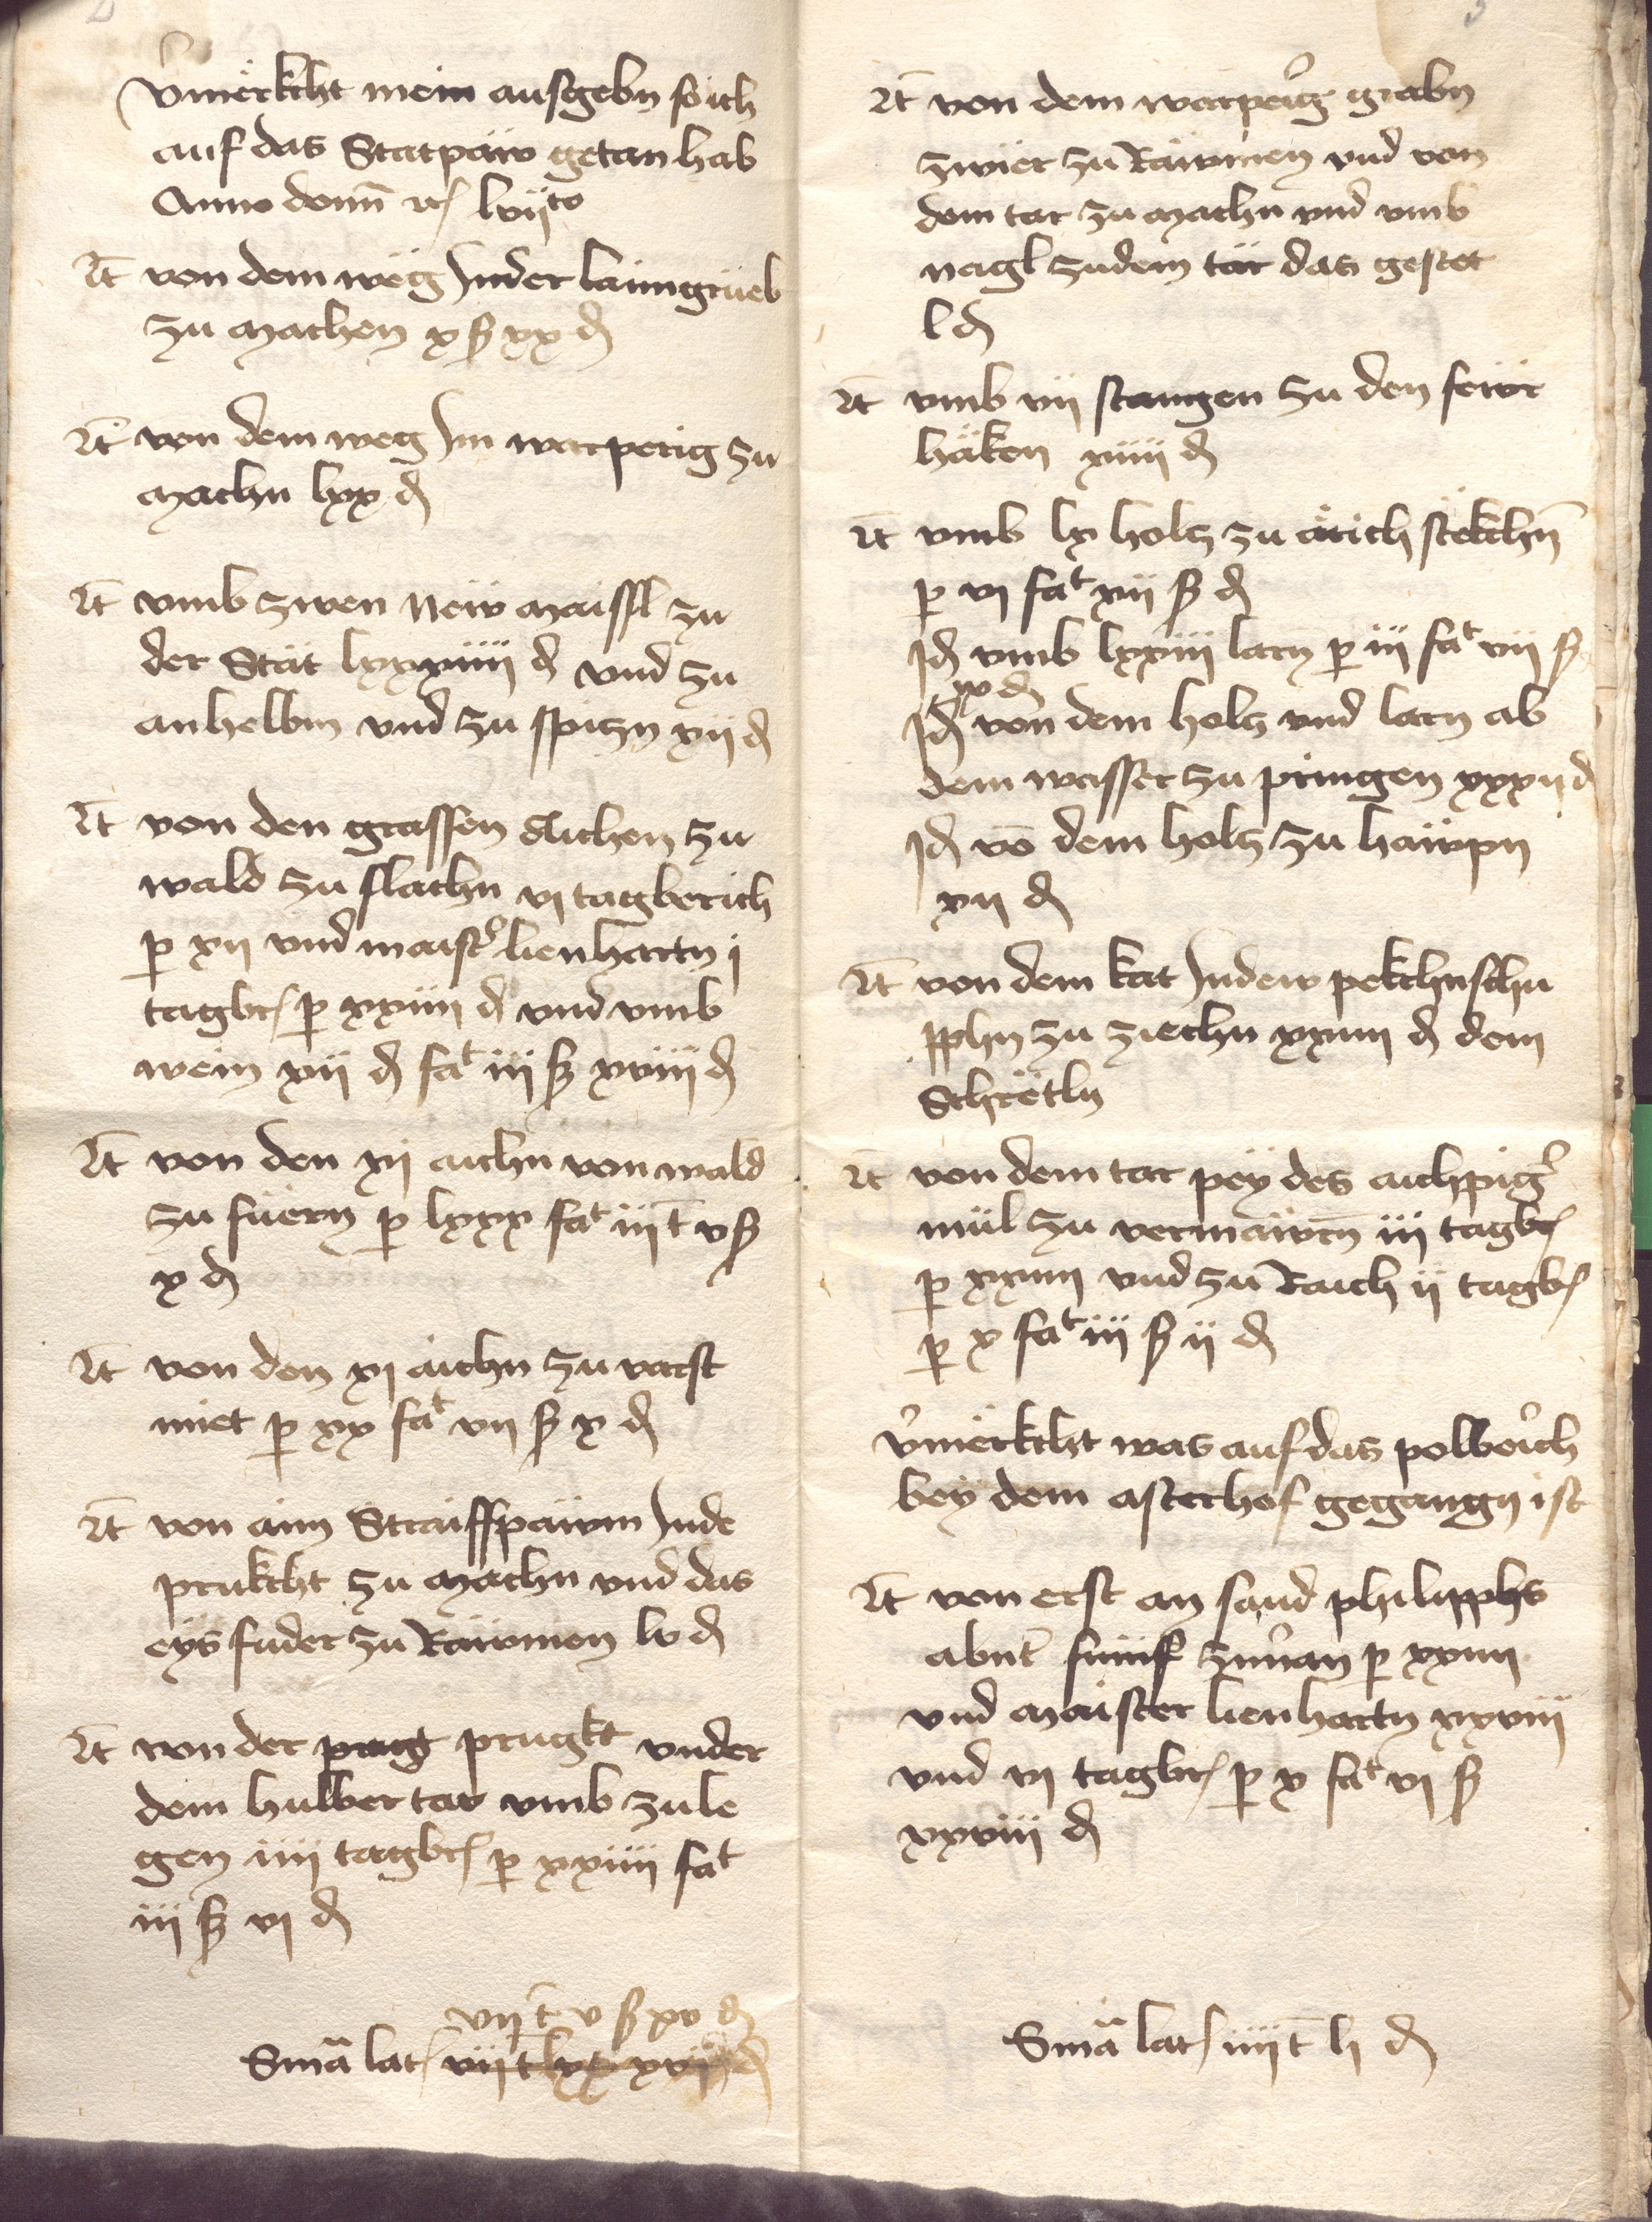 Vmerckcht mein ausgebn so ich
auf das Statpaw getan hab
Anno domī rc lvij to
It von dem weg Inder laimgrueb
zu machen x ß xx d
It von dem weg Im warperig zu
machn lxx d
It vmb zwen New maissl zu
der Stat lxxxiiij d vnd zu
anhelbm vnd zu spiczn xij d
It von den grossen Aichen zu
wald zu slachn vj tagberich
p xij vnd maistr lienhartn j
tagbr p xxiiij d vnd vmb
wein xij d fat iij ß xviij d
It von den xij aichn von wald
zu fuern p lxxx fat iij t v ß
x d
It von den xj aichn zu varst
miet p xx fat vij ß x d
It von aim Straiffpawm Inde
prukcht zu machn vnd das
eys fuder zu Rawmen lv d
It von der prug prugkt vnder
dem hulber tar vmb zu le
gen iiij tagbr p xxiiij fat
iij ß vj d
vij t v ß xv d
Sma lat vij t lxx xvij d
It von dem warperg grabn
zwier zu Rawmen vnd von
dem tar zu machn vnd vmb
nagl zu dem tar das gestet
l d
It vmb vij stangen zu den fewr
häken xiiij d
It vmb lx holcz zu ärich stekchn
p vj fat xij ß d
Id vmb lxxiij larn p iij fat vij ß
ix d
Id von dem holcz vnd larn ab
dem wasser zu pringen xxxij d
Id vō dem holcz zu hawpn
xij d
It von dem kat Inder pekchnschu
pphn zu ziechn xxiiij d dem
Schrötln
It von dem tar pey des aichpigr
mül zu vermawrn iij tagbr
p xxiiij vnd zu Raich ij tagbr
p x fat iij ß ij d
Vmerkcht was auf das polberch
bey dem asterhof gegangn ist
It von erst an sand philipphs
abnt fumf zimran p xxiiij
vnd maister lienhartn xxviij
vnd vj tagbr p x fat vj ß
xxviij d
Sma lat iiij t lj d